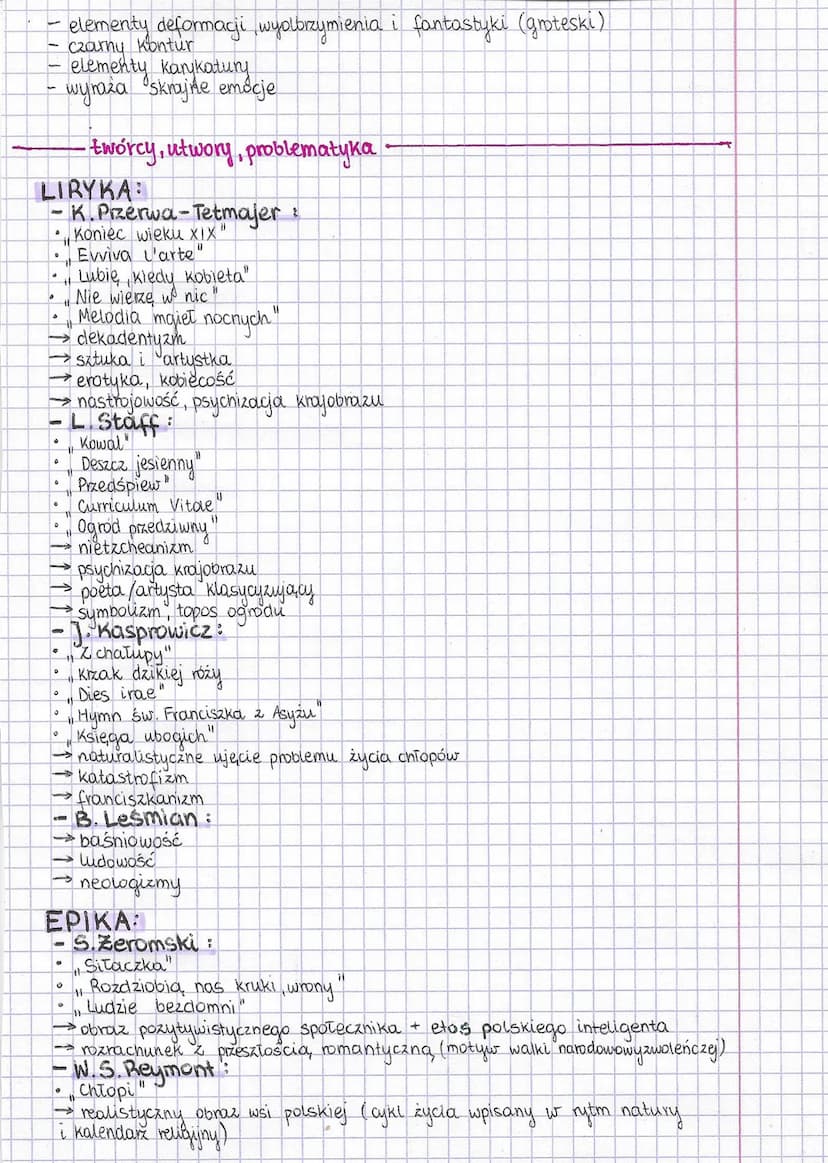 - elementy deformacji, wyolbrzymienia i fantastyki (groteski)
- czarny kontur
- elementy karykatury
- wyraża skrajne emocje
twórcy, utwory, problematyka
LIRYKA:
- K. Przerwa-Tetmajer:
• „Koniec wieku XIX"
• „Evviva L'arte"
• „Lubię, kiedy kobieta"
• „Nie wierzę w nic"
• „Melodia mgieł nocnych"
→ dekadentyzm
→ sztuka i artystka
→ erotyka, kobiecość
→ nastrojowość, psychizacja krajobrazu
- L. Staff:
• „Kowal"
• „Deszcz jesienny"
• „Przedśpiew"
• „Curriculum Vitae"
• „Ogród przedziwny"
→ nietzcheanizm
→ psychizacja krajobrazu
→ poeta/artysta klasycyzujący
→ symbolizm, topos ogrodu
- J. Kasprowicz:
• „Z chałupy"
• „Krzak dzikiej róży
• „Dies irae"
• „Hymn św. Franciszka z Asyżu"
• „Księga ubogich"
→ naturalistyczne ujęcie problemu życia chłopów
→ katastrofizm
→ franciszkanizm
- B. Leśmian:
→ baśniowość
→ ludowość
→ neologizmy
EPIKA:
- S. Żeromski:
• „Siłaczka"
• „Rozdziobią nas kruki, wrony"
• „Ludzie bezdomni"
→ obraz pozytywistycznego społecznika + etos polskiego inteligenta
→ rozrachunek z przeszłością romantyczną (motyw walki narodowowyzwoleńczej)
- W. S. Reymont:
• „Chłopi"
→ realistyczny obraz wsi polskiej (cykl życia wpisany w rytm natury
i kalendarz religijny)